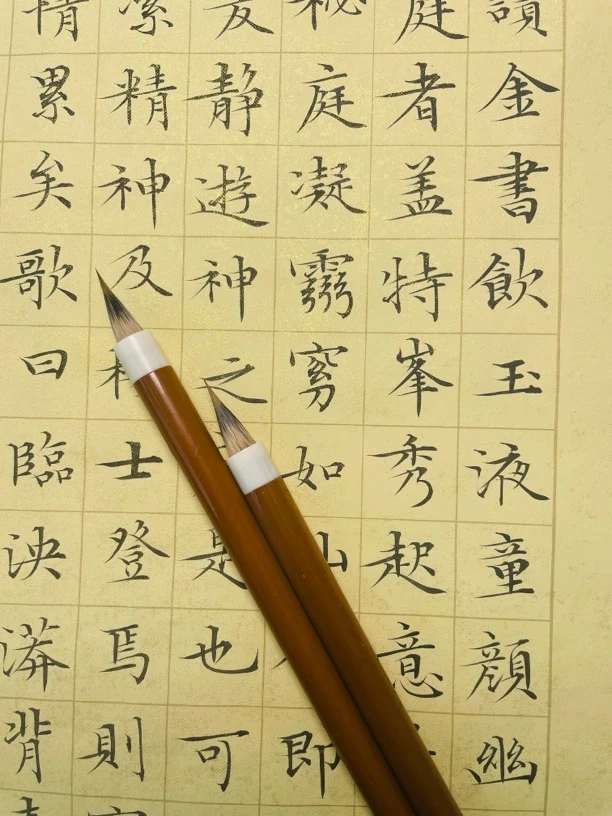 讀金書飲玉液童顏幽
庭者蓋特峯秀起意
秘庭凝如即
靜遊神之是也可
潔精神及士登焉則
情累矣歌曰臨泱漭背